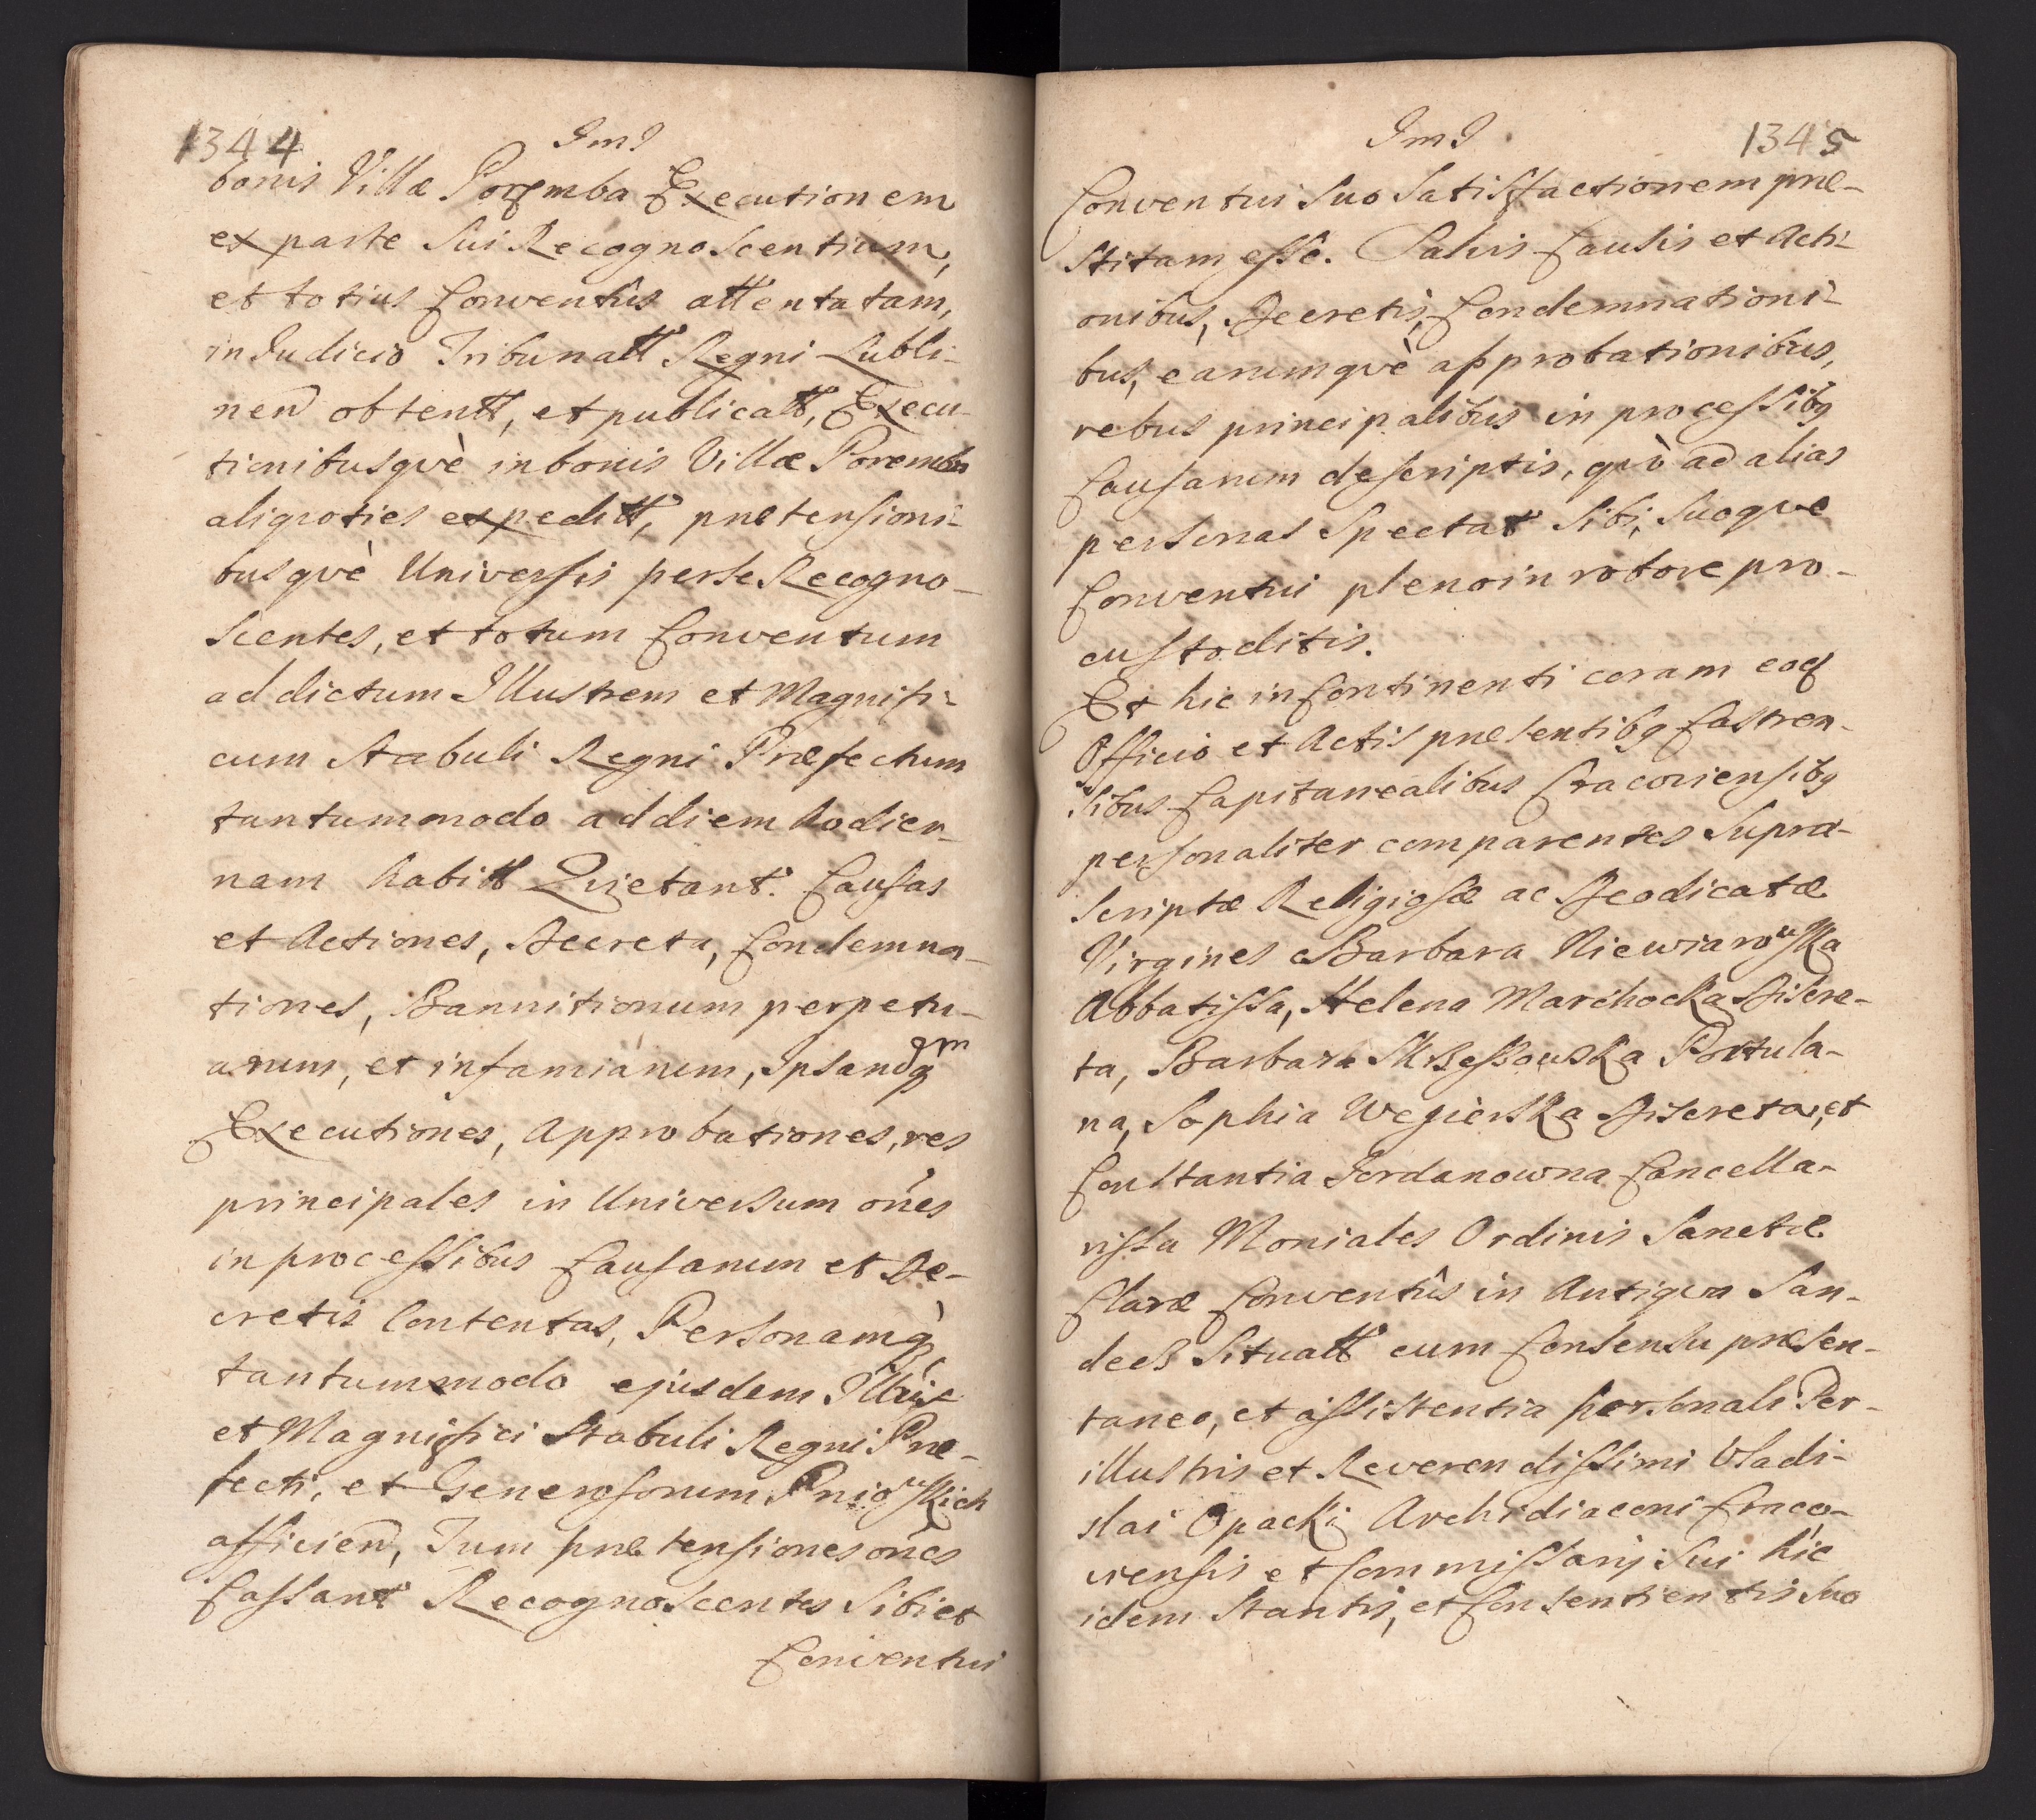 1344
ImJ
bonis Villæ Poręmba Executionem
ex parte sui Recognoscentium,
et totius Conventûs attentatam,
in Judicio Tribunatt Regni Lubli-
nen obtentt, et publicatt, Execu-
tionibusquè in bonis Villæ Poremba
aliqvoties expeditt, prætensioni-
busquè Universis per se Recogno-
scentes, et totum Conventum
ad dictum Illustrem et Magnifi-
cum Stabuli Regni Præfectum
tantummodo ad diem hodier-
nam habitt Qvietant. Causas
et Actiones, Decreta, Condemna-
tiones, Bannitionum perpetu-
arum, et infamiarum, ipsarumq
Executiones, Approbationes, res
principales in Universum oñes
in processibus Causarum et De-
cretis Contentas, Personamq
tantummodo ejusdem Illris
et Magnifici Stabuli Regni Præ-
fecti, et Generosorum Pniowskich
afficien, Tum prætensiones oñes
Cassant Recognoscentes sibi et
Conventui
ImJ
1345
Conventui suo Satisfactionem præ-
stitam esse. Salvis Causis et Acti-
onibus, Decretis, Condemnationi-
bus, earumqvè approbationibus,
rebus principalibus in processibq
Causarum descriptis, qvò ad alias
personas Spectat sibi, suoqve
Conventui pleno in robore pro-
custoditis.
Et hic in Continenti coram eoq
Officio et Actis præsentibq Castren-
sibus Capitanealibus Cracoviensibq
personaliter comparentes Supra-
scriptæ Religiosæ ac Deodicatæ
Virgines Barbara Niewiarowska
Abbatissa, Helena Marchocka Discre-
ta, Barbara Skrzessowska Portula-
na, Sophia Wegierska Discretæ, et
Constantia Jordanowna Cancella-
rissa Moniales Ordinis Sanctæ
Claræ Conventûs in Antiqva San-
decz Situatt cum Consensu præsen-
taneo, et assistentia personali Per-
illustris et Reverendissimi Vladi-
slai Opacki Archidiaconi Craco-
viensis et Commissarij sui hic
idem Stantis, et Consentientis suo